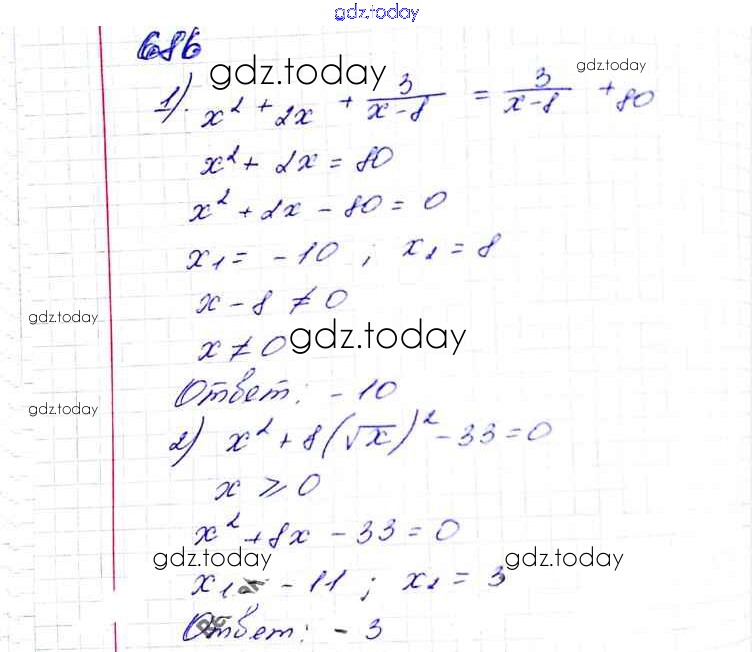 gdz.today
686
gdz.today
1). x² + 2x + 3/(x-8) = 3/(x-8) + 80
gdz.today
x² + 2x = 80
x² + 2x - 80 = 0
x₁ = -10 ; x₂ = 8
x - 8 ≠ 0
gdz.today
x ≠ 0
gdz.today
Ответ: -10
gdz.today
2) x² + 8(√x)² - 33 = 0
x ⩾ 0
x² + 8x - 33 = 0
gdz.today
gdz.today
x₁ = -11 ; x₂ = 3
Ответ: - 3